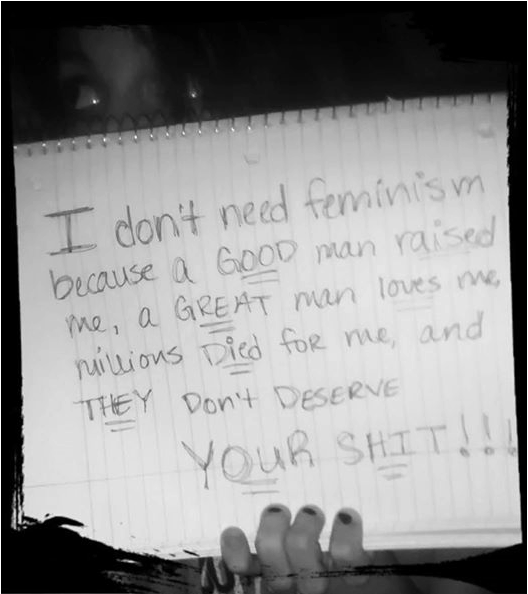 I don't need feminism
because a GOOD man raised
me, a GREAT man loves me,
millions Died for me, and
THEY Don't DESERVE
YOUR SHIT!!!